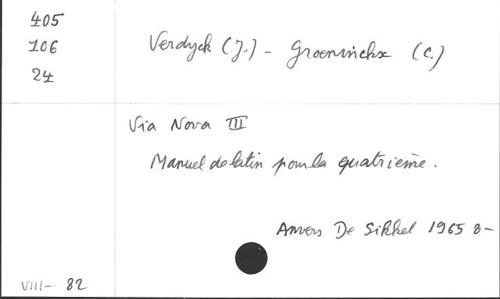 405
106
24
Verdyck (J.) - Groeninckx (C.)
Via Nova III
Manuel de latin pour la quatrième.
Anvers De Sikkel 1965 8-
VIII- 82